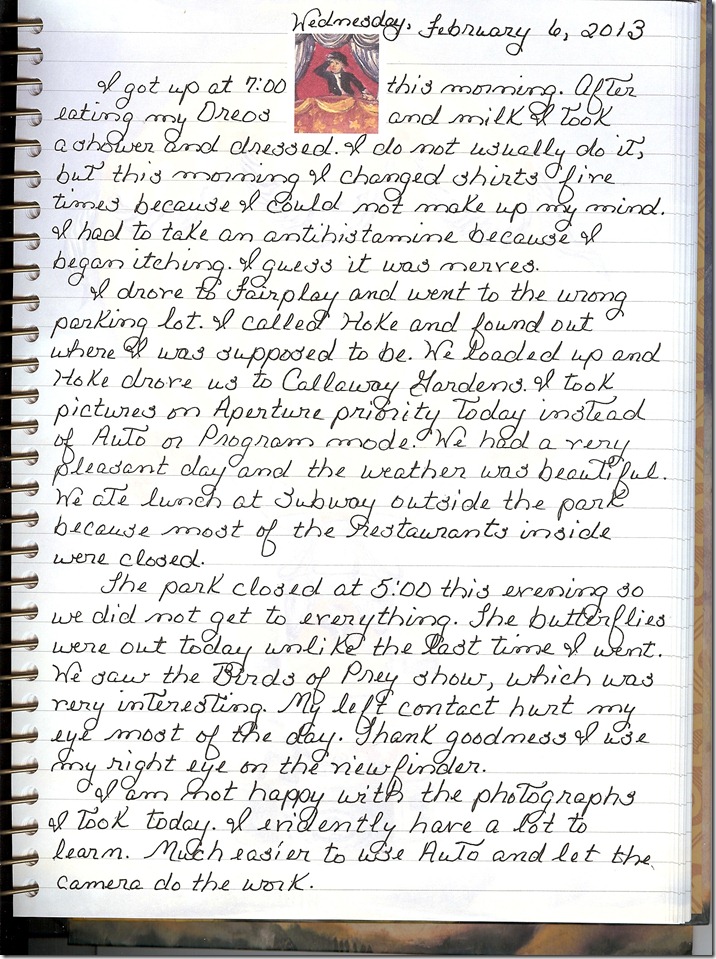 Wednesday, February 6, 2013
I got up at 7:00 this morning. After
eating my Oreos and milk I took
a shower and dressed. I do not usually do it,
but this morning I changed shirts five
times because I could not make up my mind.
I had to take an antihistamine because I
began itching. I guess it was nerves.
I drove to Fairplay and went to the wrong
parking lot. I called Hoke and found out
where I was supposed to be. We loaded up and
Hoke drove us to Callaway Gardens. I took
pictures on Aperture priority today instead
of Auto or Program mode. We had a very
pleasant day and the weather was beautiful.
We ate lunch at Subway outside the park
because most of the restaurants inside
were closed.
The park closed at 5:00 this evening so
we did not get to everything. The butterflies
were out today unlike the last time I went.
We saw the Birds of Prey show, which was
very interesting. My left contact hurt my
eye most of the day. Thank goodness I use
my right eye on the viewfinder.
I am not happy with the photographs
I took today. I evidently have a lot to
learn. Much easier to use Auto and let the
camera do the work.